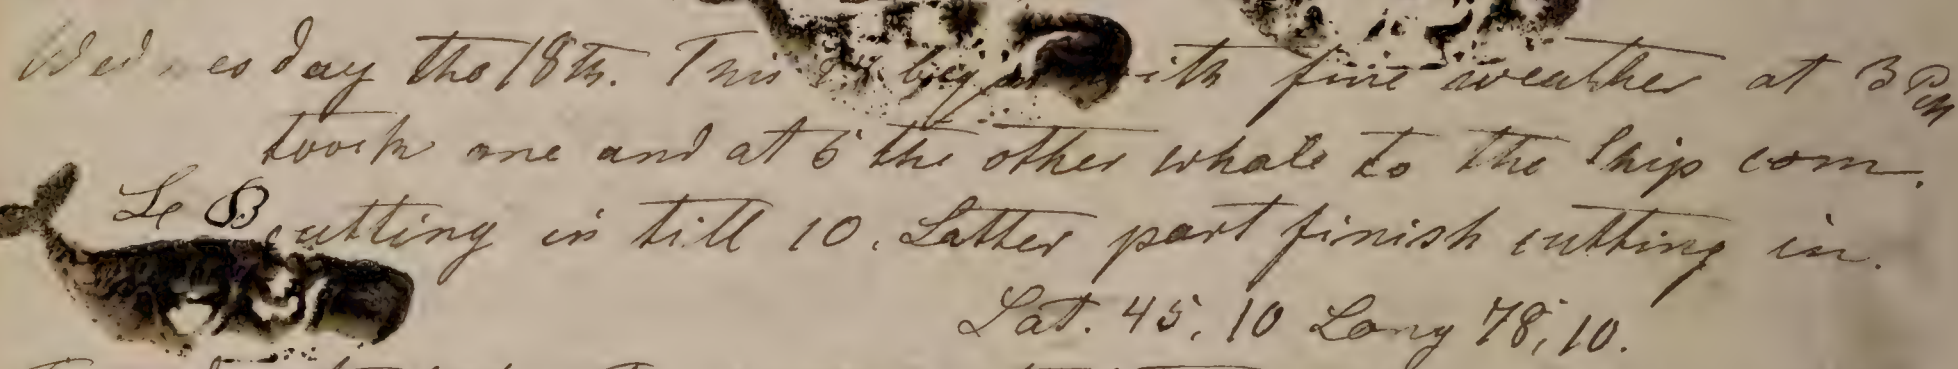 Wednesday the 18th. This day begins with fine weather at 3 Pm
toock one and at 6 the other whale to the Ship com.
Le B
cutting in till 10. Latter part finish cutting in.
Lat. 45,10 Long 78,10.